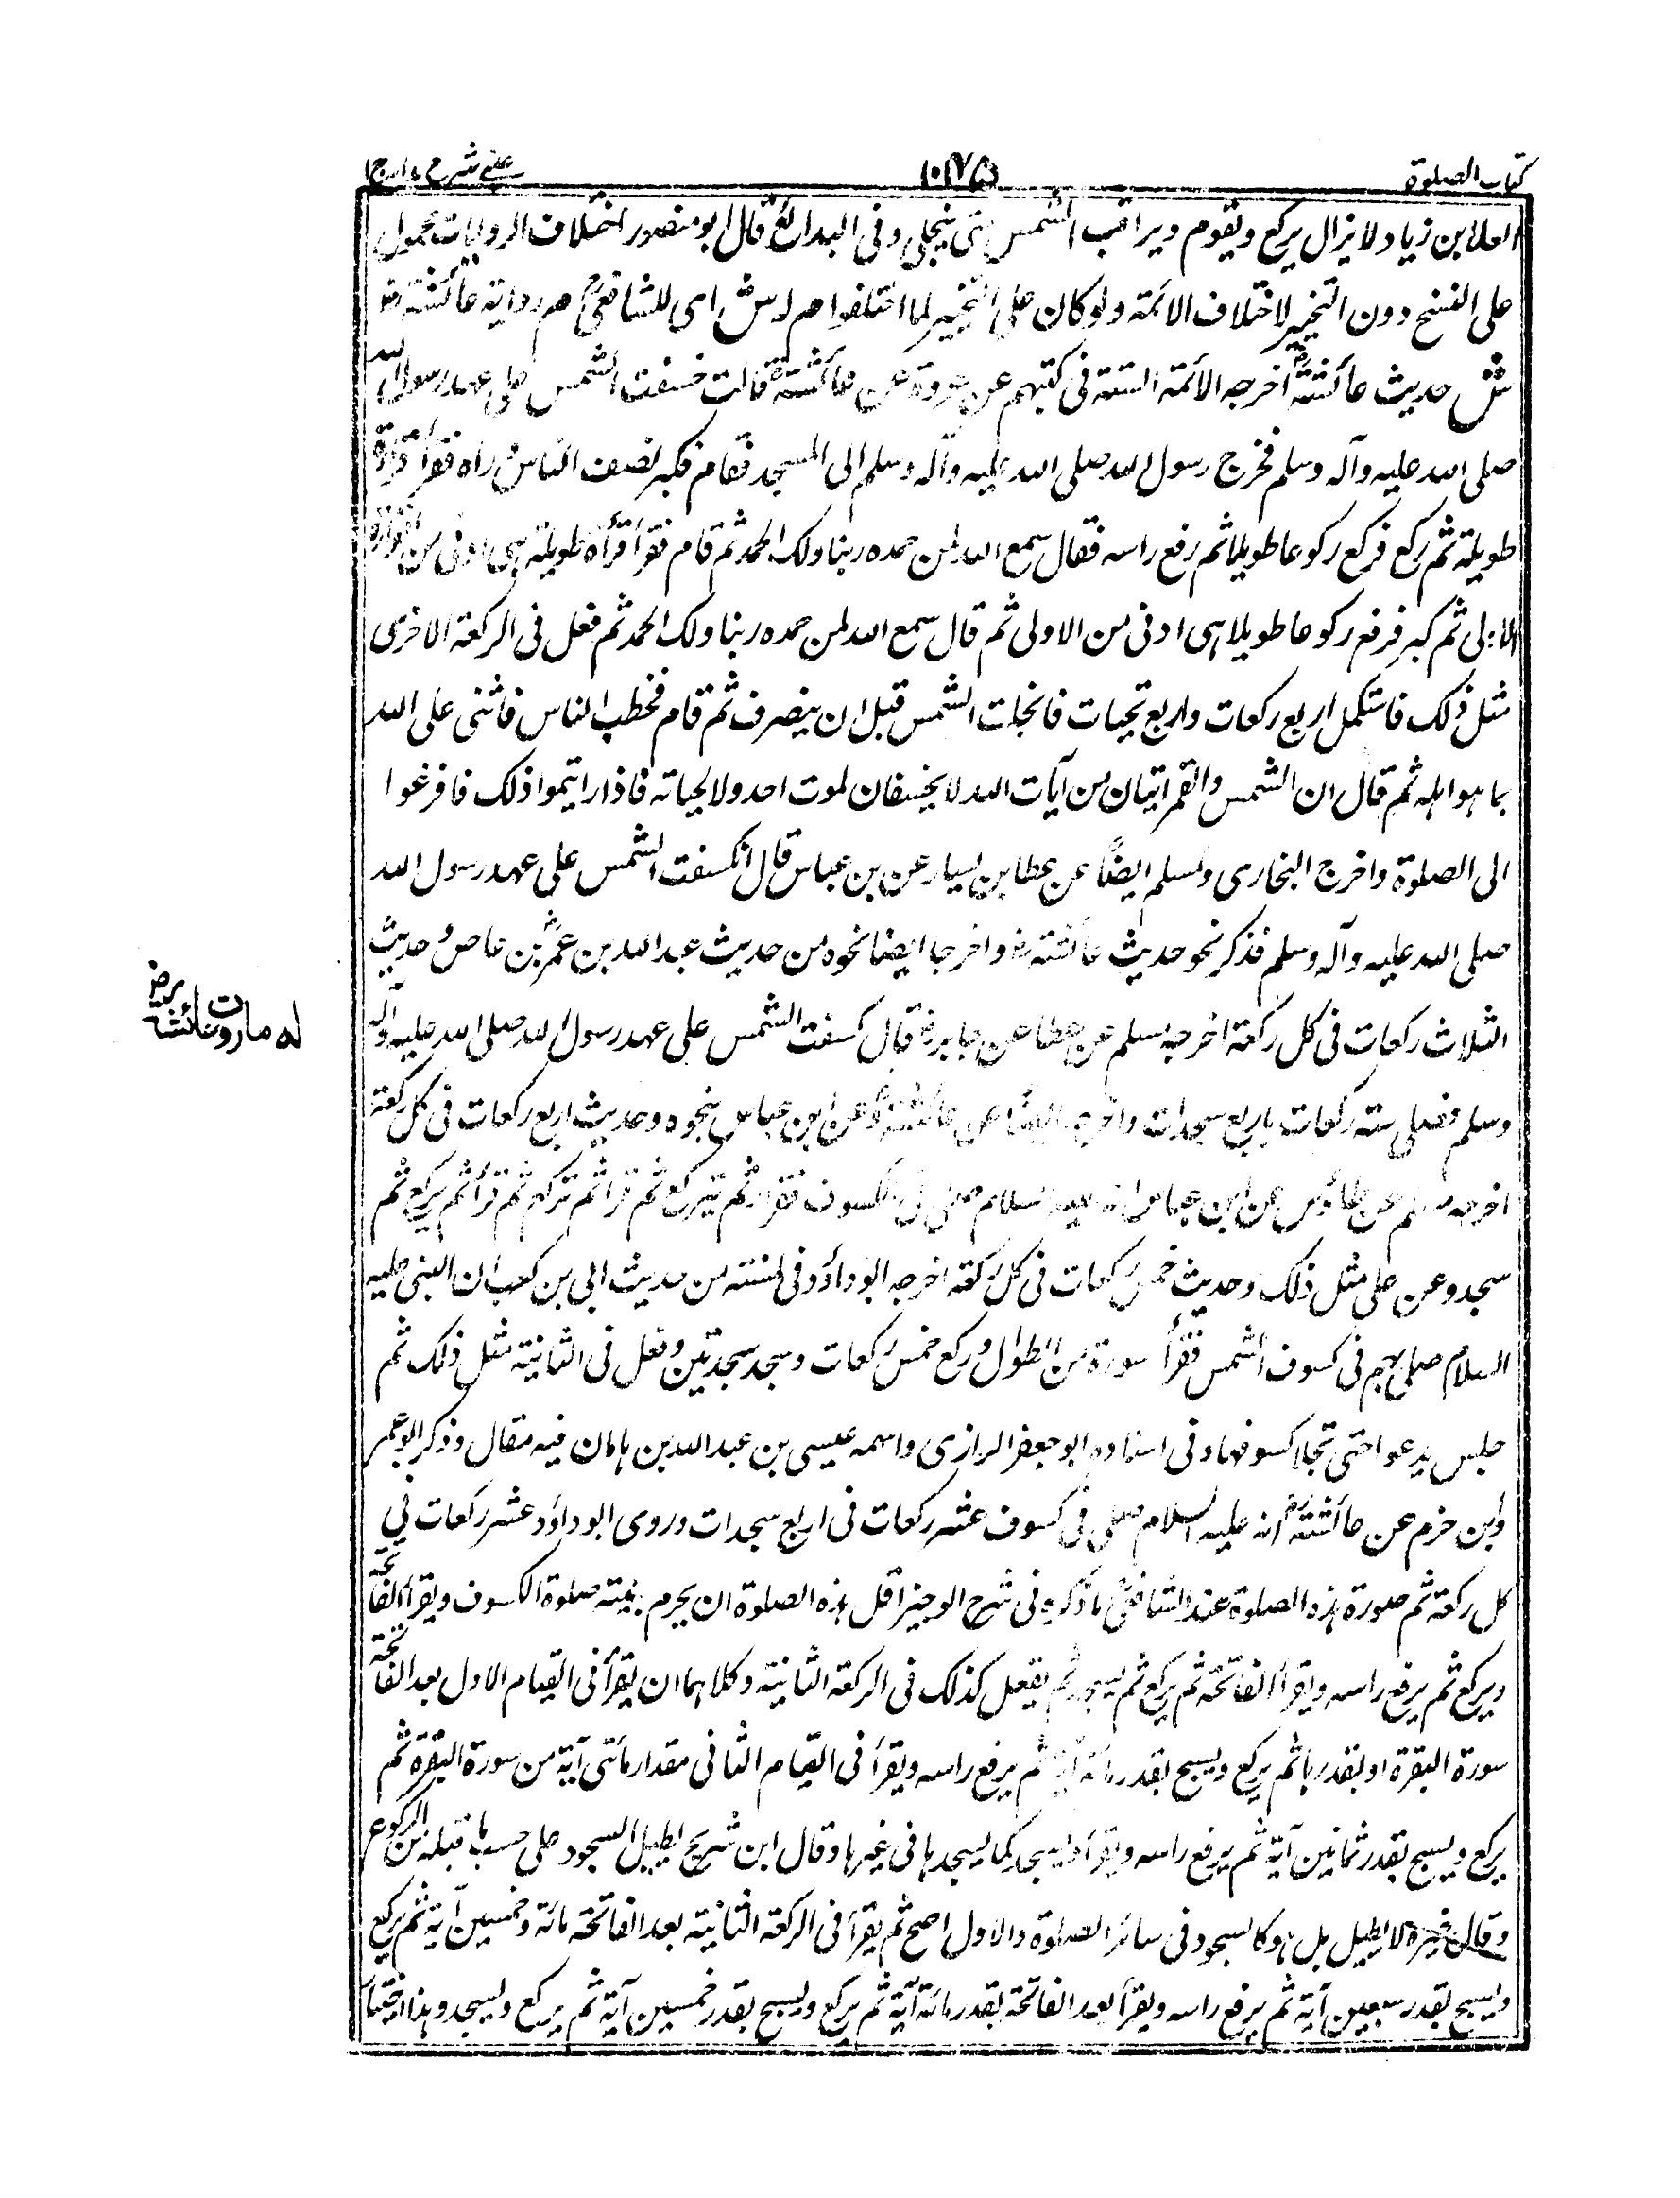 كتاب الصلوة
١٠٧٥
عينى شرح هداية ج ا
العلا ابن زياد لا يزال يركع ويقوم ويراقب الشمس حتى ينجلى وفى البدائع قال ابو منصور اختلاف الروايات محمول
على النسخ دون التخيير لاختلاف الائمة ولو كان على التخيير لما اختلفوا م له ش اى للشافعى م رواية عائشة رض
ش حديث عائشة رض اخرجه الائمة الستة فى كتبهم عن عروة عن عائشة رض قالت خسفت الشمس على عهد رسول الله
صلى الله عليه وآله وسلم فخرج رسول الله صلى الله عليه وآله وسلم الى المسجد فقام فكبر فصف الناس وراه فقرأ قرأة
طويلة ثم ركع فركع ركوعا طويلا ثم رفع راسه فقال سمع الله لمن حمده ربنا ولك الحمد ثم قام فقرأ قرأة طويلة هى ادنى من القرأة
الاولى ثم كبر فرفع ركوعا طويلا هى ادنى من الاولى ثم قال سمع الله لمن حمده ربنا ولك الحمد ثم فعل فى الركعة الاخرى
مثل ذلك فاستكمل اربع ركعات واربع تحيات فانجلت الشمس قبل ان ينصرف ثم قام فخطب الناس فاثنى على الله
بما هو اهله ثم قال ان الشمس والقمر ايتان من آيات الله لا يخسفان لموت احد ولا لحياته فاذا رايتموا ذلك فافرغوا
الى الصلوة واخرج البخارى ومسلم ايضاً عن عطا بن يسار عن بن عباس قال انكسفت الشمس على عهد رسول الله
صلى الله عليه وآله وسلم فذكر نحو حديث عائشة رض واخرجا ايضا نحوه من حديث عبد الله بن عمر بن عاص وحديث
الثلاث ركعات فى كل ركعة اخرجه مسلم عن عطا عن جابر رض قال كسفت الشمس على عهد رسول الله صلى الله عليه وآله
وسلم فصلى ستة ركعات باربع سجدات واخرج ايضاً عن عائشة وعن ابن عباس بنحوه وحديث اربع ركعات فى كل ركعة
اخرجه مسلم عن طاؤس عن ابن عباس انه عليه السلام صلى فى الكسوف فقرأ ثم يركع ثم قرا ثم تركع ثم قرأ ثم يركع ثم
سجد وعن على مثل ذلك وحديث خمس ركعات فى كل ركعة اخرجه ابو داؤد فى سننه من حديث ابى بن كعب ان النبى عليه
السلام صلى بهم فى كسوف الشمس فقرأ سورة من الطوال وركع خمس ركعات وسجد سجدتين وفعل فى الثانية مثل ذلك ثم
جلس يدعوا حتى تجلا كسوفها وفى اسناده ابو جعفر الرازى واسمه عيسى بن عبد الله بن ماهان فيه مقال وذكر ابو عمر
وابن حزم عن عائشة رض انه عليه السلام صلى فى كسوف عشر ركعات فى اربع سجدات وروى ابو داؤد عشر ركعات فى
كل ركعة ثم صورة هذه الصلوة عند الشافعى ما ذكره فى شرح الوجيز اقل هذه الصلوة ان يحرم بنية صلوة الكسوف ويقرأ الفاتحة
ويركع ثم يرفع راسه ويقرأ الفاتحة ثم يركع ثم يسجد ثم يفعل كذلك فى الركعة الثانية وكلاهما ان يقرأ فى القيام الاول بعد الفاتحة
سورة البقرة او بقدرها ثم يركع ويسبح بقدر مائة آية ثم يرفع راسه ويقرأ فى القيام الثانى مقدار مائتى آية من سورة البقرة ثم
يركع ويسبح بقدر ثمانين آية ثم يرفع راسه ويقرأ ويسجد كما يسجدها فى غيرها وقال ابن شريح يطيل السجود على حسب ما قبله من الركوع
وقال غيره لا يطيل بل هو كالسجود فى سائر الصلوة والاول اصح ثم يقرأ فى الركعة الثانية بعد الفاتحة مائة وخمسين آية ثم يركع
ويسبح بقدر سبعين آية ثم يرفع راسه ويقرأ بعد الفاتحة بقدر مائة آية ثم يركع ويسبح بقدر خمسين آية ثم يركع ويسجد وهذا اختيار
له ما روت عائشة رض